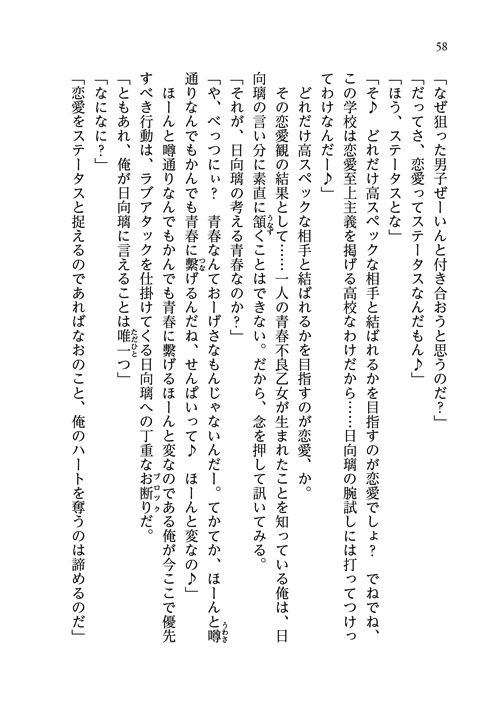 58
「なぜ狙った男子ぜーいんと付き合おうと思うのだ？」
「だってさ、恋愛ってステータスなんだもん♪」
「ほう、ステータスとな」
「そ♪　どれだけ高スペックな相手と結ばれるかを目指すのが恋愛でしょ？　でねでね、
この学校は恋愛至上主義を掲げる高校なわけだから……日向璃の腕試しには打ってつけっ
てわけなんだー♪」
どれだけ高スペックな相手と結ばれるかを目指すのが恋愛、か。
その恋愛観の結果として……一人の青春不良乙女が生まれたことを知っている俺は、日
向璃の言い分に素直に頷うなずくことはできない。だから、念を押して訊いてみる。
「それが、日向璃の考える青春なのか？」
「や、べっつにぃ？　青春なんておーげさなもんじゃないんだー。てかてか、ほーんと噂うわさ
通りなんでもかんでも青春に繋つなげるんだね、せんぱいって♪　ほーんと変なの♪」
ほーんと噂通りなんでもかんでも青春に繋げるほーんと変なのである俺が今ここで優先
すべき行動は、ラブアタックを仕掛けてくる日向璃への丁重なお断りブロックだ。
「ともあれ、俺が日向璃に言えることは唯一ただひとつ」
「なになに？」
「恋愛をステータスと捉えるのであればなおのこと、俺のハートを奪うのは諦めるのだ」